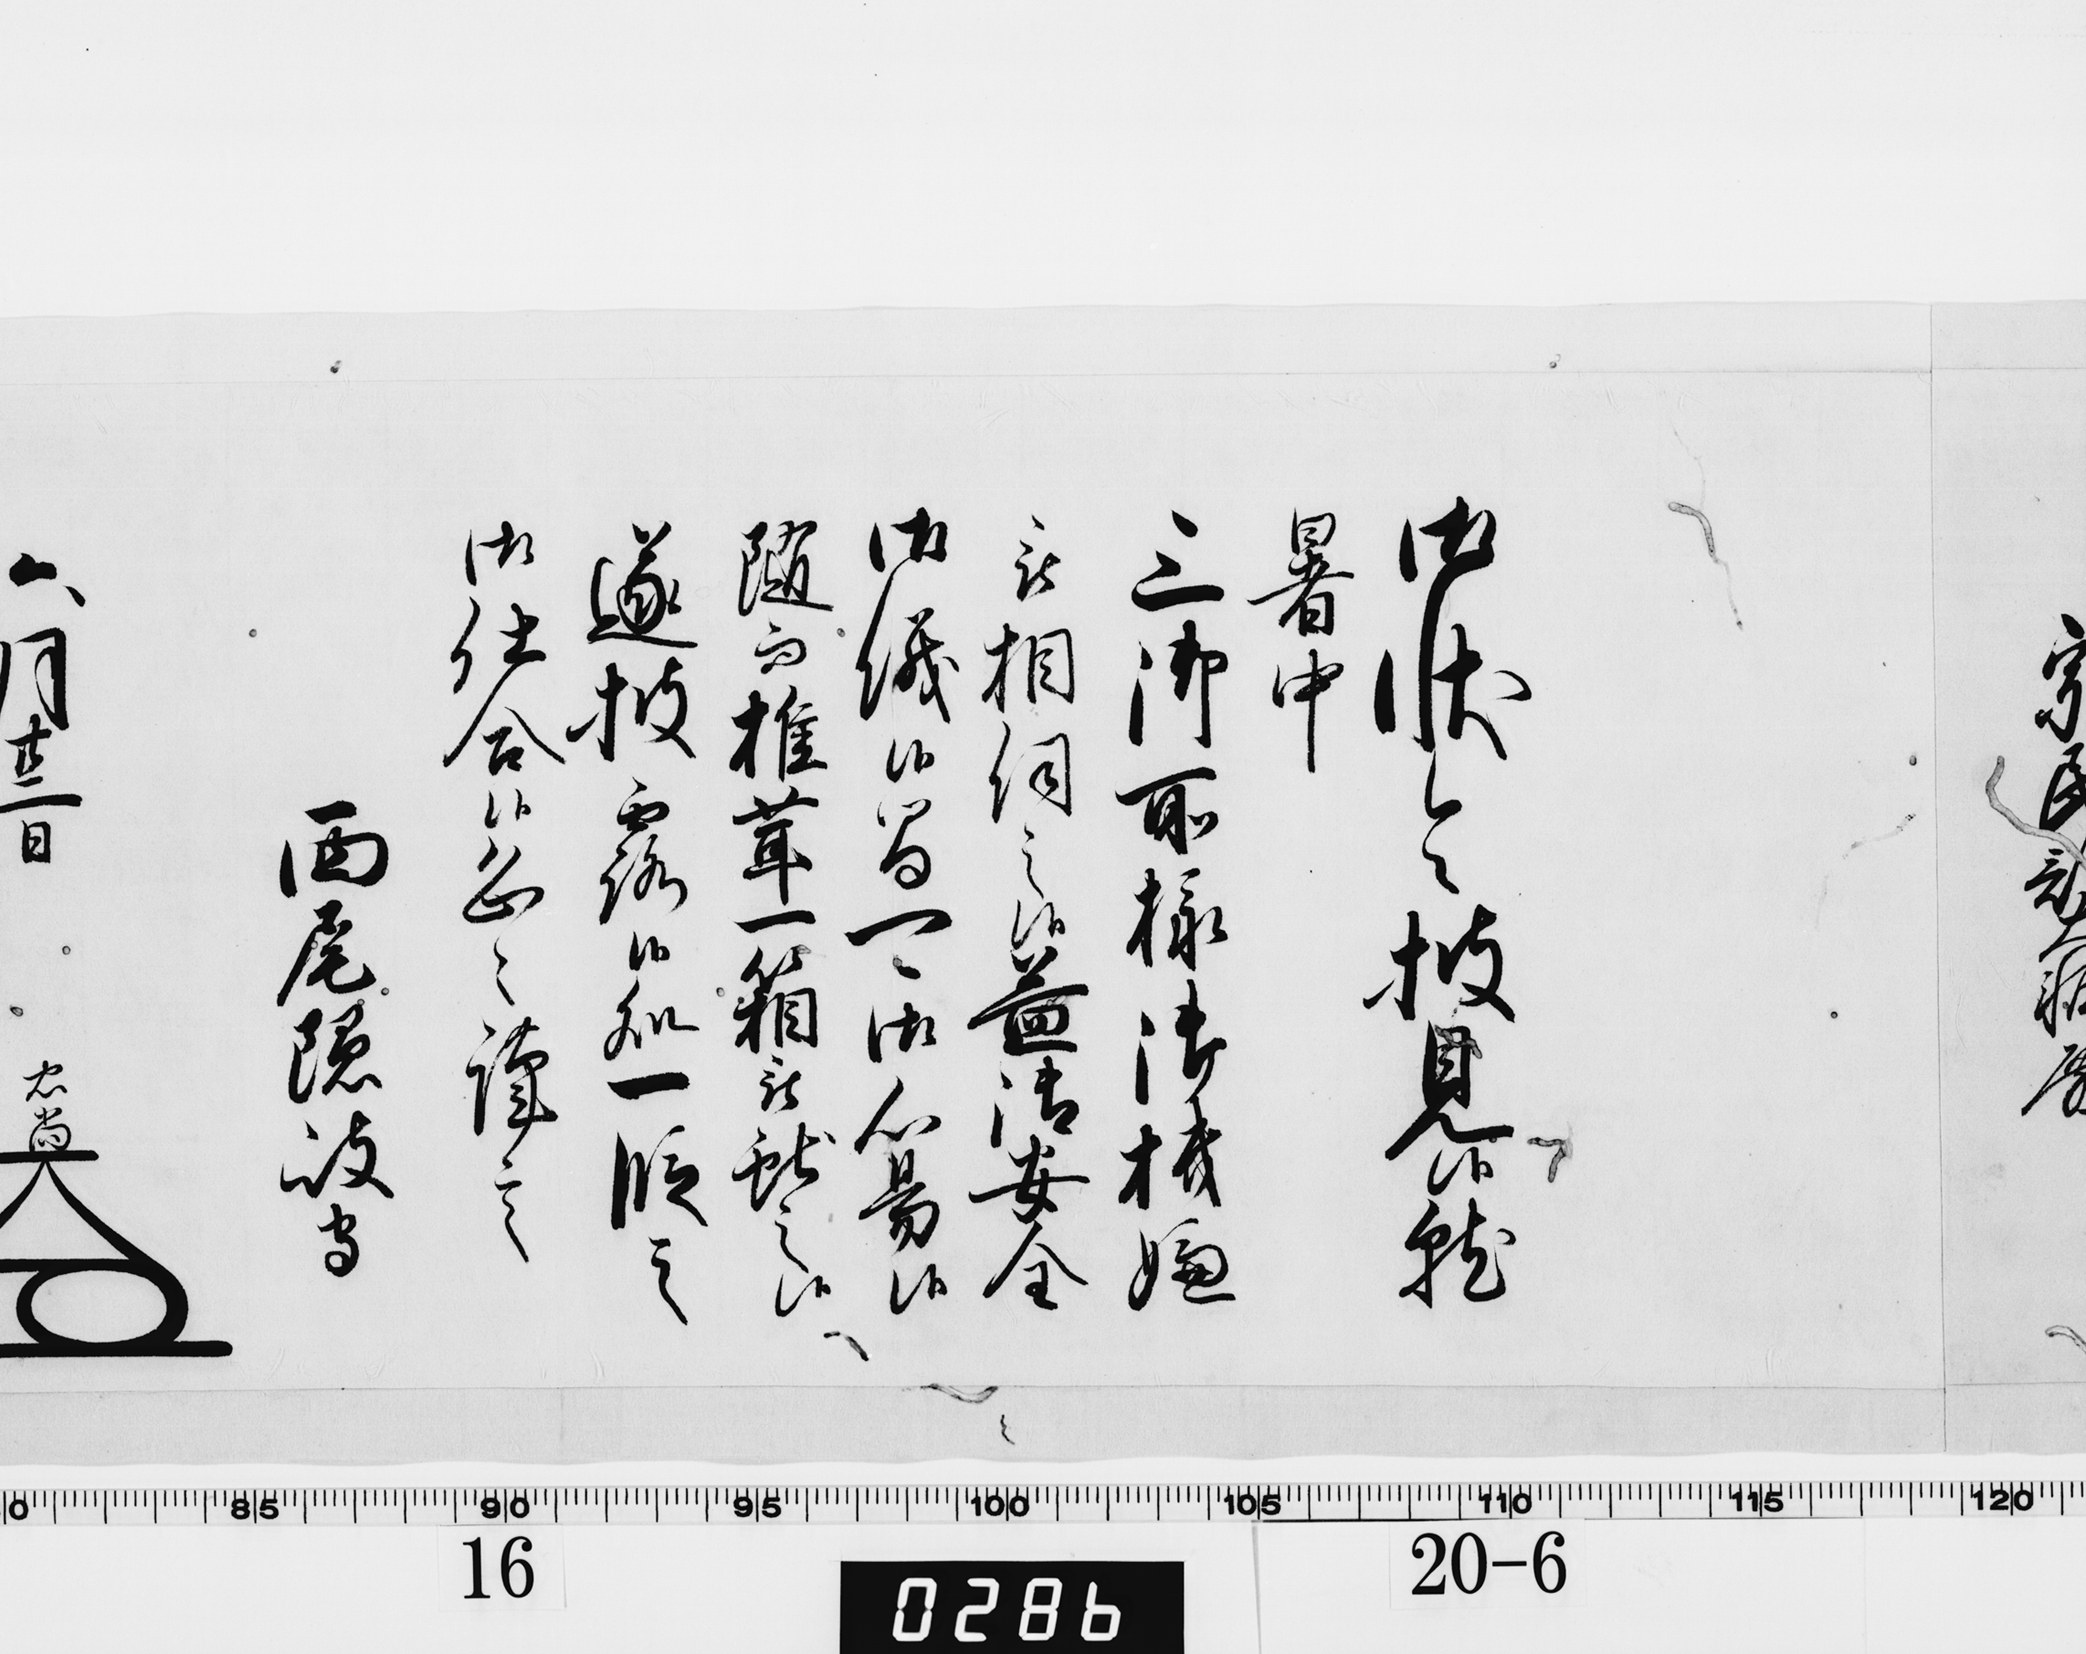 宗
御状令披見候就
暑中
三御所様御機嫌
被相伺之候益御安全
御儀候間可御心易候
随而椎茸一箱被献之候
遂披露候処一段之
御仕合候恐々謹言
西尾隠岐守
六月廿三日
忠尚
80 85 90 95 100 105 110 115 120
16
20-6
0286